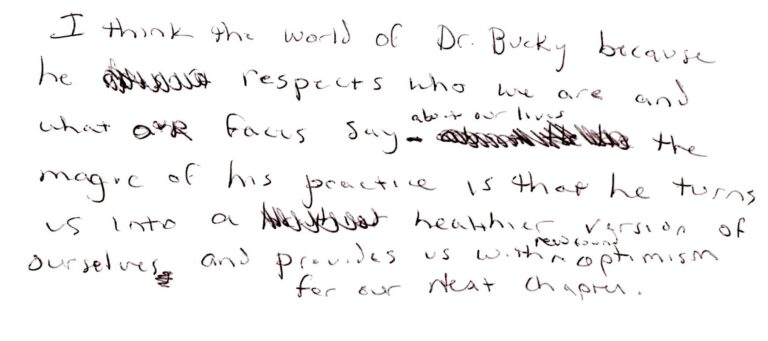 I think the world of Dr. Bucky because
he respects who we are and
what our faces say - about our lives the
magic of his practice is that he turns
us into a healthier version of
ourselves, and provides us with newfound optimism
for our next chapter.